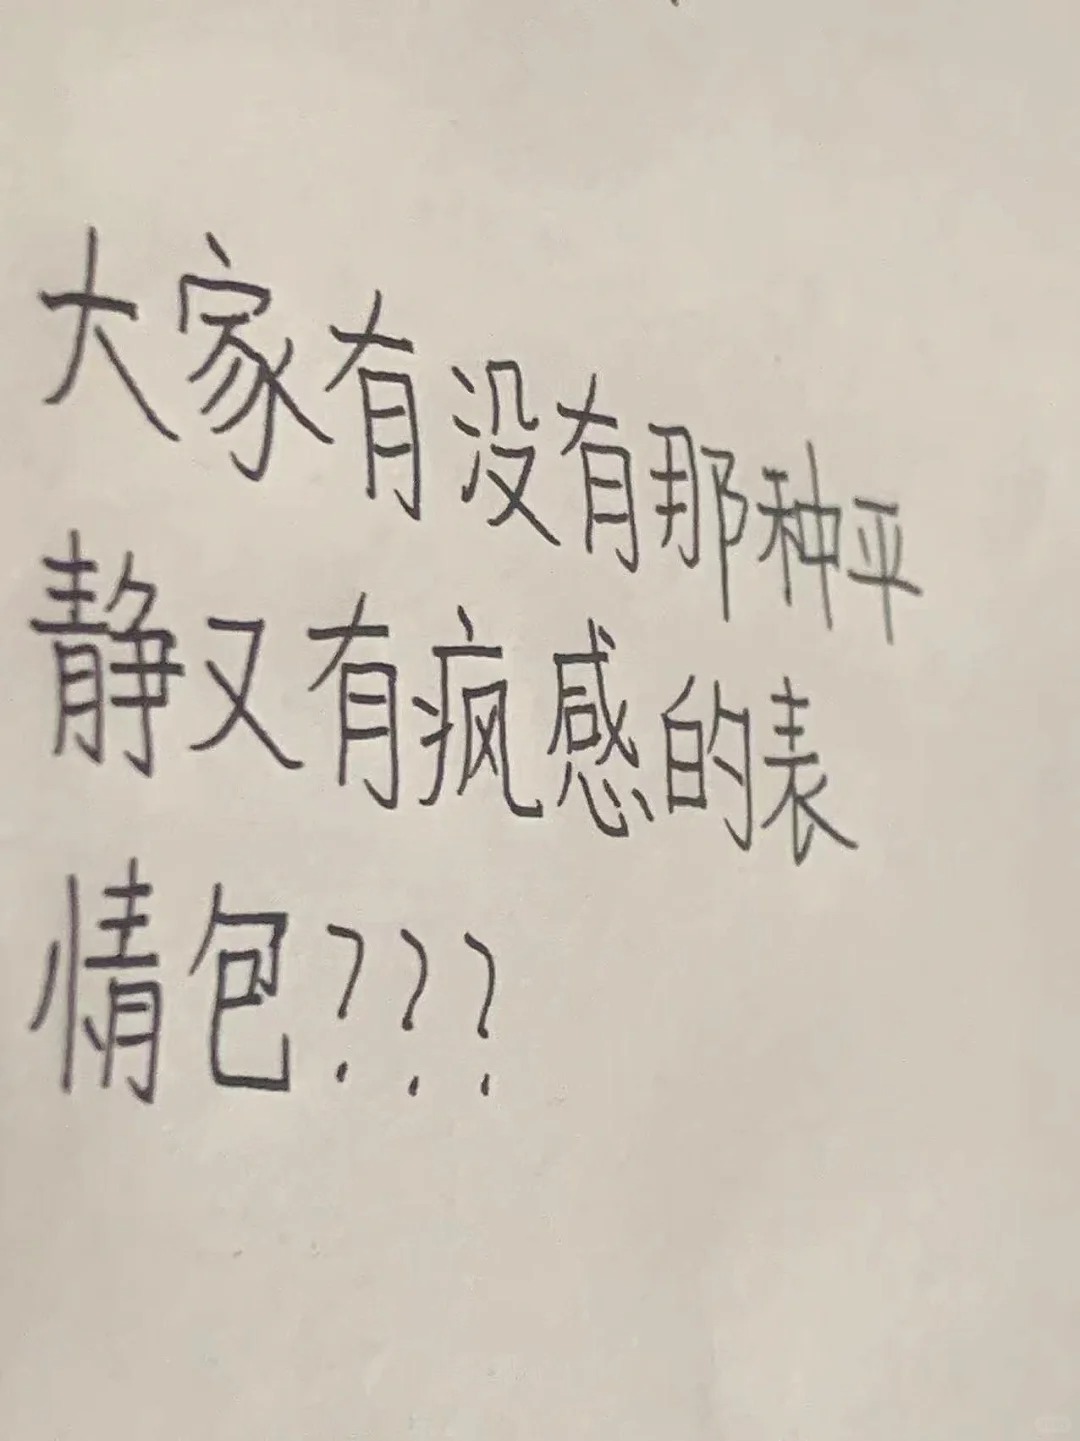 大家有没有那种平
静又有疯感的表
情包???